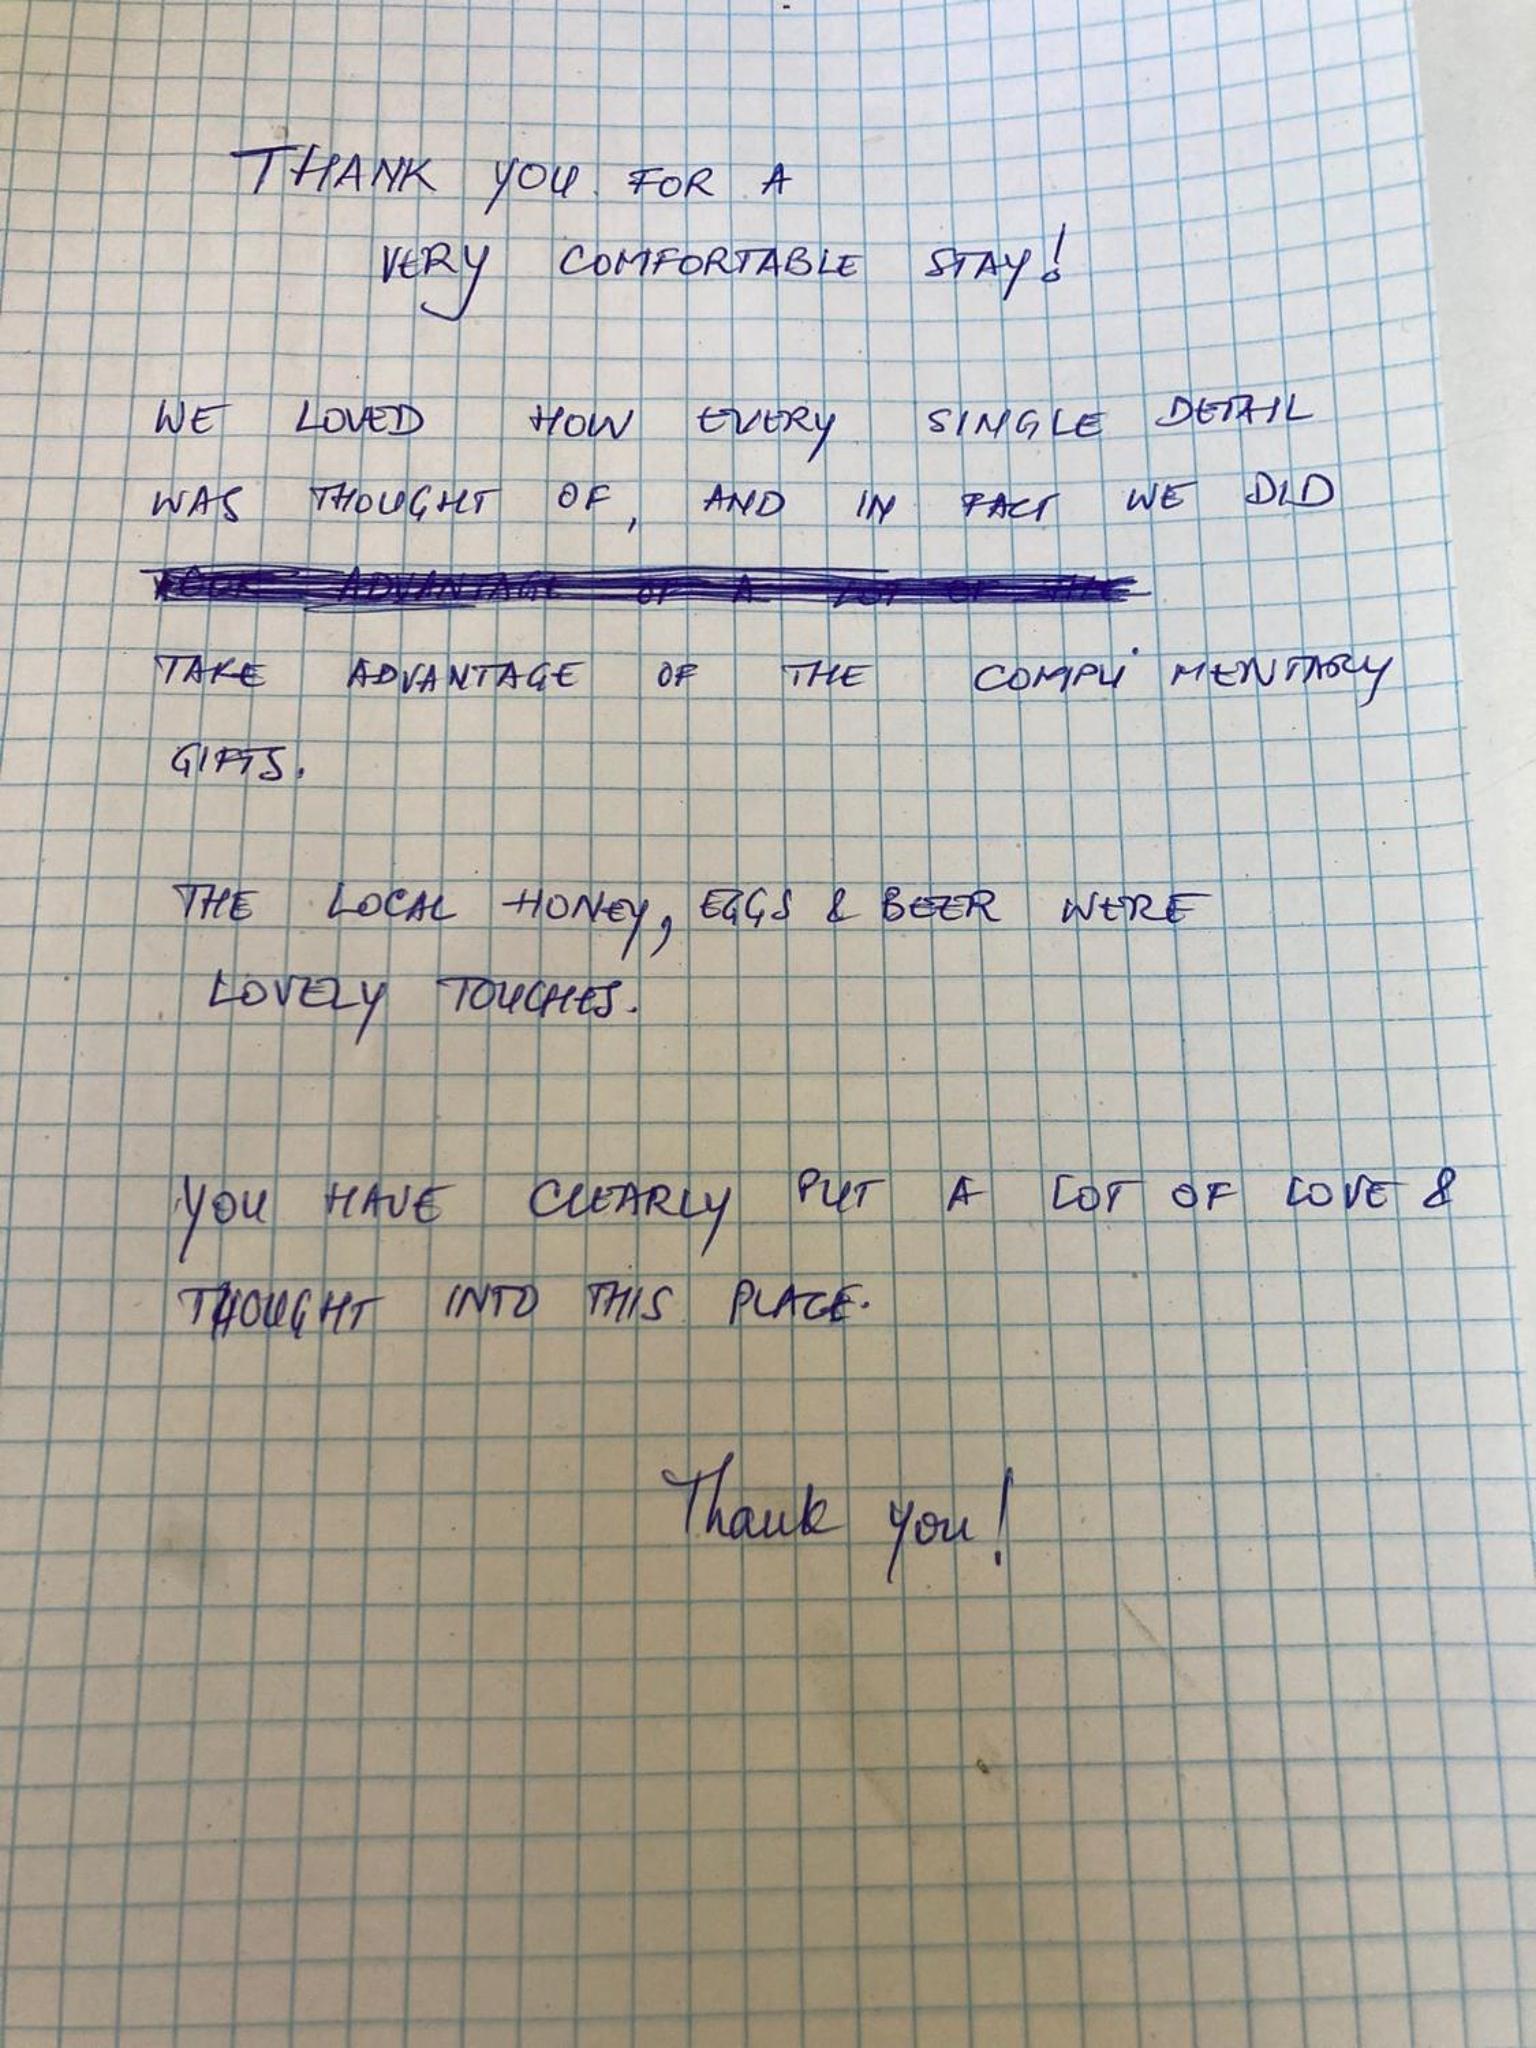 THANK YOU FOR A
VERY COMFORTABLE STAY!
WE LOVED HOW EVERY SINGLE DETAIL
WAS THOUGHT OF, AND IN FACT WE DID
ADVANTAGE OF A LOT OF THE
TAKE ADVANTAGE OF THE COMPLIMENTARY
GIFTS.
THE LOCAL HONEY, EGGS & BEER WERE
LOVELY TOUCHES.
YOU HAVE CLEARLY PUT A LOT OF LOVE &
THOUGHT INTO THIS PLACE.
Thank you!